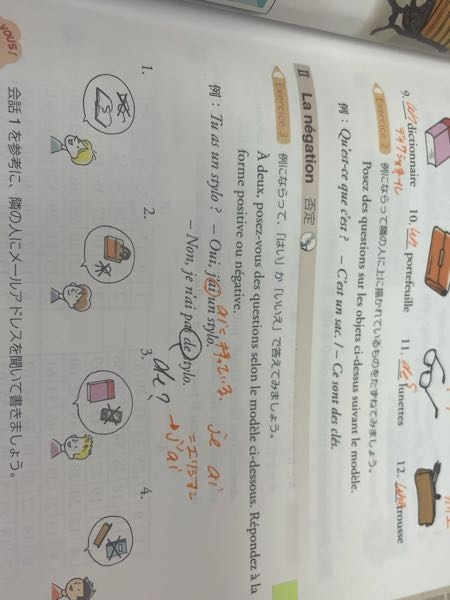 9. un dictionnaire
10. un portefeuille
11. des lunettes
12. une trousse
Exercice 2 例にならって隣の人に上に描かれているものをたずねてみましょう。
Posez des questions sur les objets ci-dessus suivant le modèle.
例 : Qu'est-ce que c'est ? – C'est un sac. / – Ce sont des clés.
II La négation 否定
Exercice 3 例にならって、「はい」か「いいえ」で答えてみましょう。
À deux, posez-vous des questions selon le modèle ci-dessous. Répondez à la
forme positive ou négative.
例 : Tu as un stylo ? – Oui, j'ai un stylo.
ai = 持っている。
je ai
– Non, je n'ai pas de stylo.
de?
= エリジオン
→ j'ai
1.
2.
3.
4.
YOUS!
会話 1 を参考に、隣の人にメールアドレスを聞いて書きましょう。